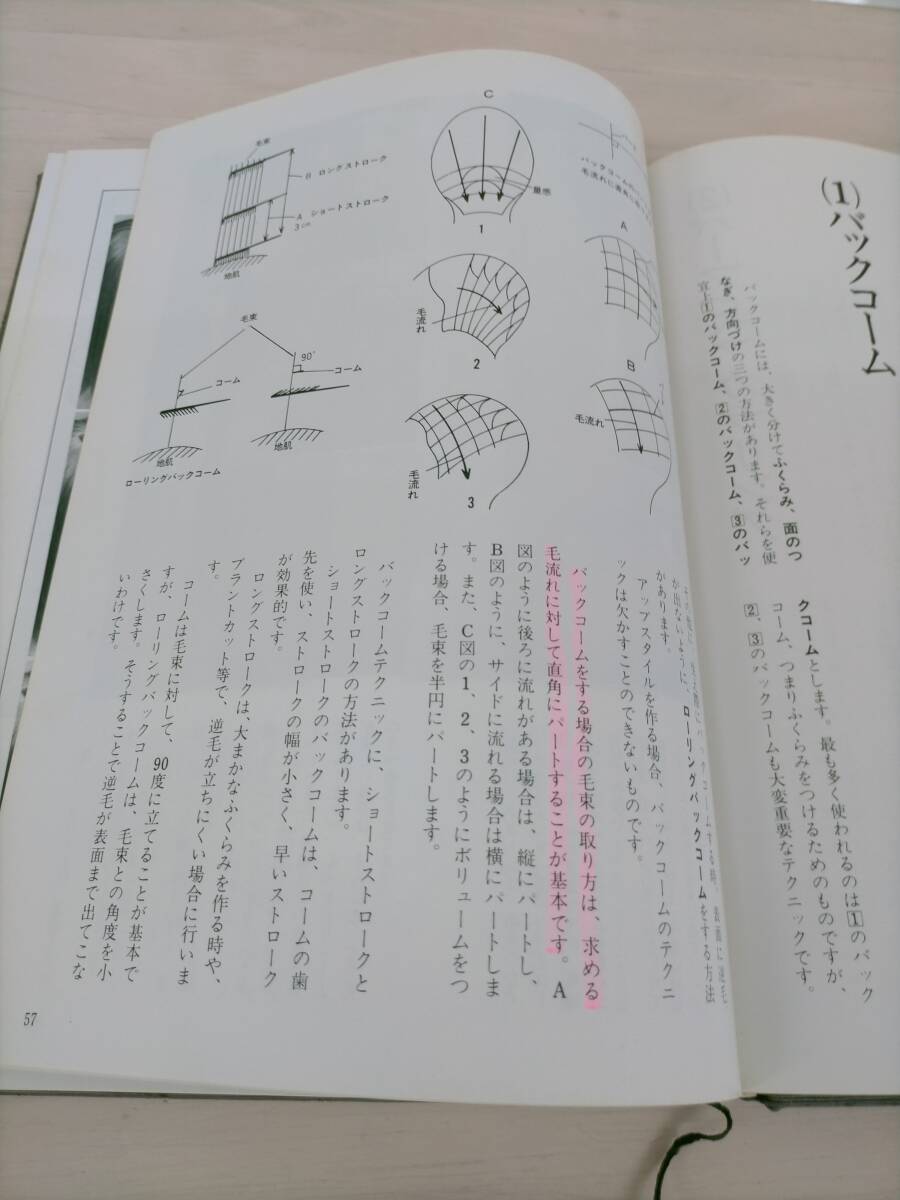 (1)バックコーム
バックコームには、大きく分けてふくらみ、面のつ
なぎ、方向づけの三つの方法があります。それらを便
宜上1のバックコーム、2のバックコーム、3のバッ
クコームとします。最も多く使われるのは1のバック
コーム、つまりふくらみをつけるためのものですが、
2、3のバックコームも大変重要なテクニックです。
が出ないように、ローリングバックコームをする方法
があります。
アップスタイルを作る場合、バックコームのテクニ
ックは欠かすことのできないものです。
バックコームをする場合の毛束の取り方は、求める
毛流れに対して直角にパートすることが基本です。A
図のように後ろに流れがある場合は、縦にパートし、
B図のように、サイドに流れる場合は横にパートしま
す。また、C図の1、2、3のようにボリュームをつ
ける場合、毛束を半円にパートします。
バックコームテクニックに、ショートストロークと
ロングストロークの方法があります。
ショートストロークのバックコームは、コームの歯
先を使い、ストロークの幅が小さく、早いストローク
が効果的です。
ロングストロークは、大まかなふくらみを作る時や、
ブラントカット等で、逆毛が立ちにくい場合に行いま
す。
コームは毛束に対して、90度に立てることが基本で
すが、ローリングバックコームは、毛束との角度を小
さくします。そうすることで逆毛が表面まで出てこな
いわけです。
毛束
B ロングストローク
A ショートストローク
3cm
地肌
毛束
コーム
90°
コーム
地肌
地肌
ローリングバックコーム
C
量感
1
毛流れ
2
毛流れ
3
A
B
毛流れ
57